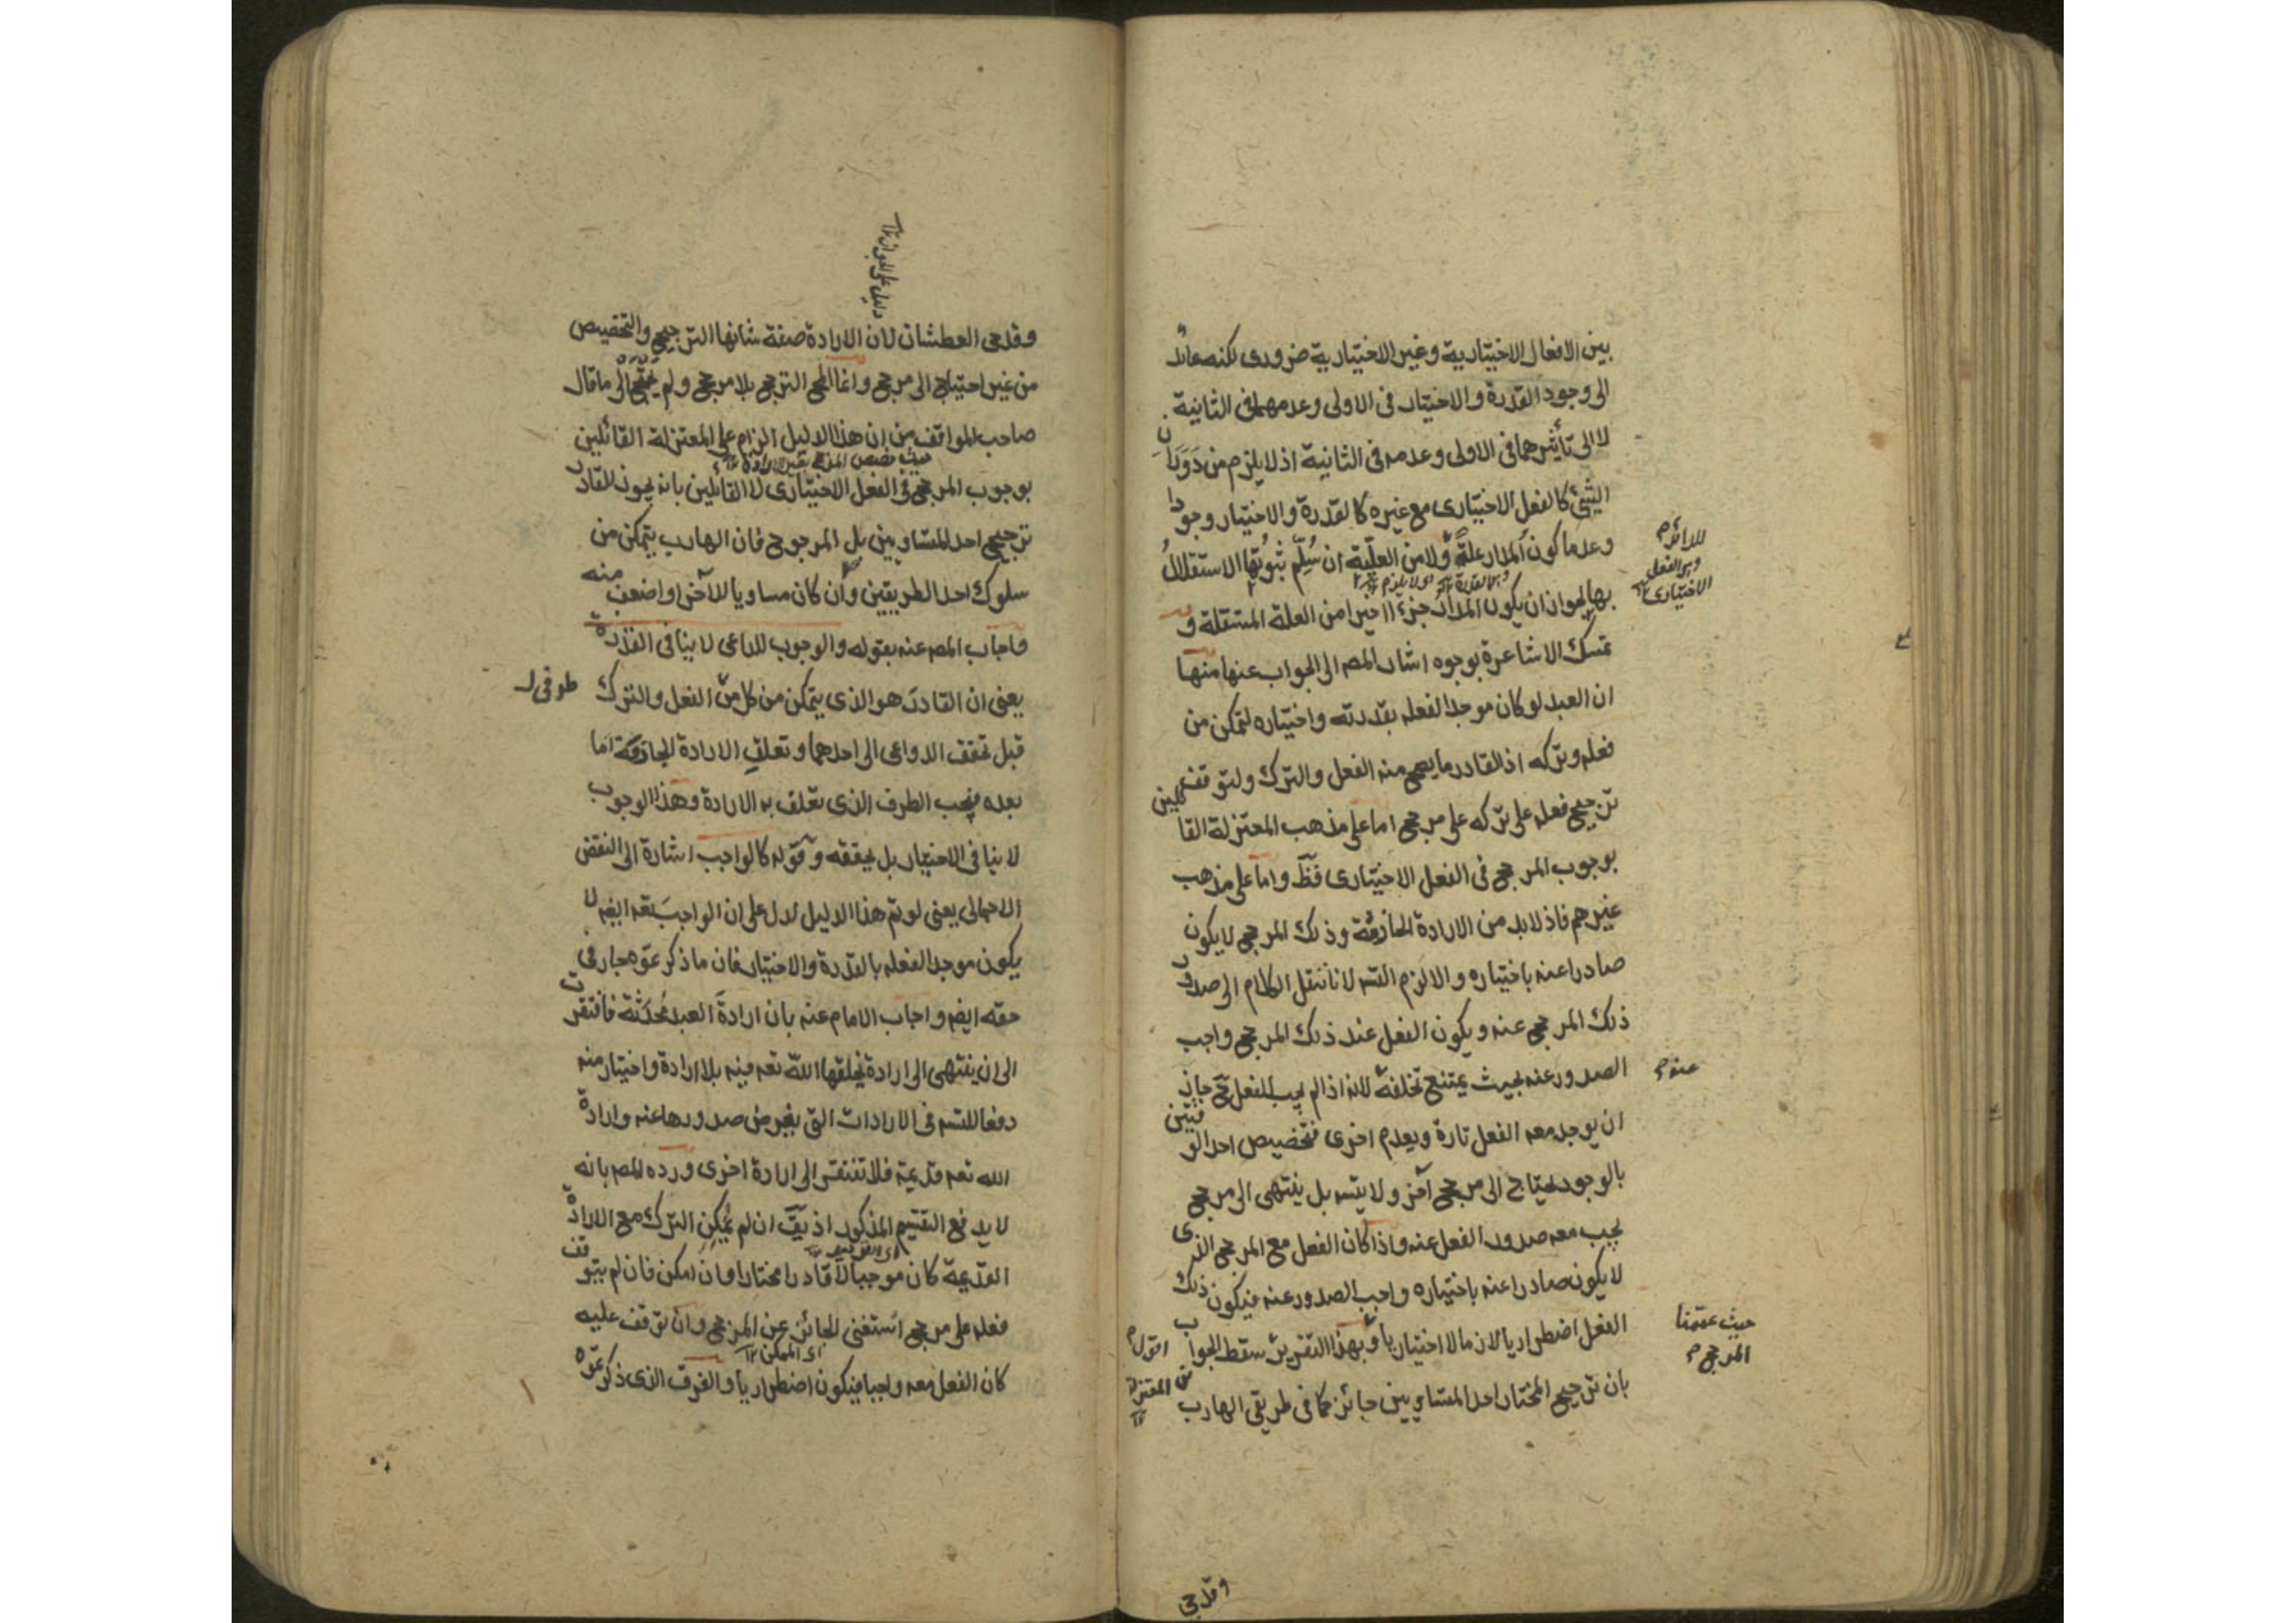 بين الافعال الاختيارية وغير الاختيارية ضرورى لكنه عائد
الى وجود القدرة والاختيار فى الاولى وعدمهما فى الثانية
لا الى تأثيرهما فى الاولى وعدمه فى الثانية اذ لا يلزم من دوران
الشئ كالفعل الاختيارى مع غيره كالقدرة والاختيار وجودا
وعدما كون المدار علة ولا من العلية ان سلم ثبوتها الاستقلال
بها لجواز ان يكون المدار جزءا اخيرا من العلة المستقلة و
تمسك الاشاعرة بوجوه اشار المص الى الجواب عنها منها
ان العبد لو كان موجدا لفعله بقدرته واختياره لتمكن من
فعله وتركه اذ القادر ما يصح منه الفعل والترك ولتوقف
ترجيح فعله على تركه على مرجح اما على مذهب المعتزلة القائلين
بوجوب المرجح فى الفعل الاختيارى فظ واما على مذهب
غيرهم فاذ لا بد من الارادة الجازمة وذلك المرجح لا يكون
صادرا عنه باختياره والا لزم التسه لانا ننقل الكلام الى صدور
ذلك المرجح عنه ويكون الفعل عند ذلك المرجح واجب
الصدور عنه بحيث يمتنع تخلفه لانه اذا لم يجب الفعل ح جاز
ان يوجد معه الفعل تارة ويعدم اخرى فتخصيص احد الوقتين
بالوجود يحتاج الى مرجح آخر ولا يتسه بل ينتهى الى مرجح
يجب معه صدور الفعل عنه واذا كان الفعل مع المرجح الذى
لا يكون صادرا عنه باختياره واجب الصدور عنه فيكون ذلك
الفعل اضطراريا لازما لا اختياريا وبهذا التقرير سقط الجواب
بان ترجيح المختار احد المتساويين جائز كما فى طريقى الهارب
للدائر م
وهو الفعل
الاختيارى ١٢
عنه م
حيث عممنا
المرجح م
وقدحى
دليل على الجواز ١٢
وقدحى العطشان لان الارادة صفة شانها الترجيح والتخصيص
من غير احتياج الى مرجح وانما المح الترجح بلا مرجح ولم يحتج الى ما قال
صاحب المواقف من ان هذا الدليل الزام على المعتزلة القائلين
بوجوب المرجح فى الفعل الاختيارى لا القائلين بانه يجوز للقادر
ترجيح احد المتساويين بل المرجوح فان الهارب يتمكن من
سلوك احد الطريقين وان كان مساويا للآخر او اضعف منه
واجاب المص عنه بقوله والوجوب للداعى لا ينافى القدرة
يعنى ان القادر هو الذى يتمكن من كل من الفعل والترك
طرفى
قبل تحقق الدواعى الى احدهما وتعلق الارادة الجازمة اما
بعده فيجب الطرف الذى تعلق به الارادة وهذا الوجوب
لا ينافى الاختيار بل يحققه وقوله كالواجب اشارة الى النقض
الاجمالى يعنى لو تم هذا الدليل لدل على ان الواجب تعه ايضه لا
يكون موجدا لفعله بالقدرة والاختيار فان ما ذكرتموه جار فى
حقه ايضه واجاب الامام عنه بان ارادة العبد محدثة فافتقرت
الى ان ينتهى الى ارادة يخلقها الله تعه فيه بلا ارادة واختيار منه
دفعا للتسه فى الارادات التى يفرض صدورها عنه وارادة
الله تعه قديمة فلا تفتقر الى ارادة اخرى ورده المص بانه
لا يدفع التقسيم المذكور اذ يقَ ان لم يمكن الترك مع الارادة
القديمة كان موجبا لا قادرا مختارا وان امكن فان لم يتوقف
فعله على مرجح استغنى الجائز عن المرجح وان توقف عليه
اى الممكن ١٢
كان الفعل معه واجبا فيكون اضطراريا والفرق الذى ذكرتموه